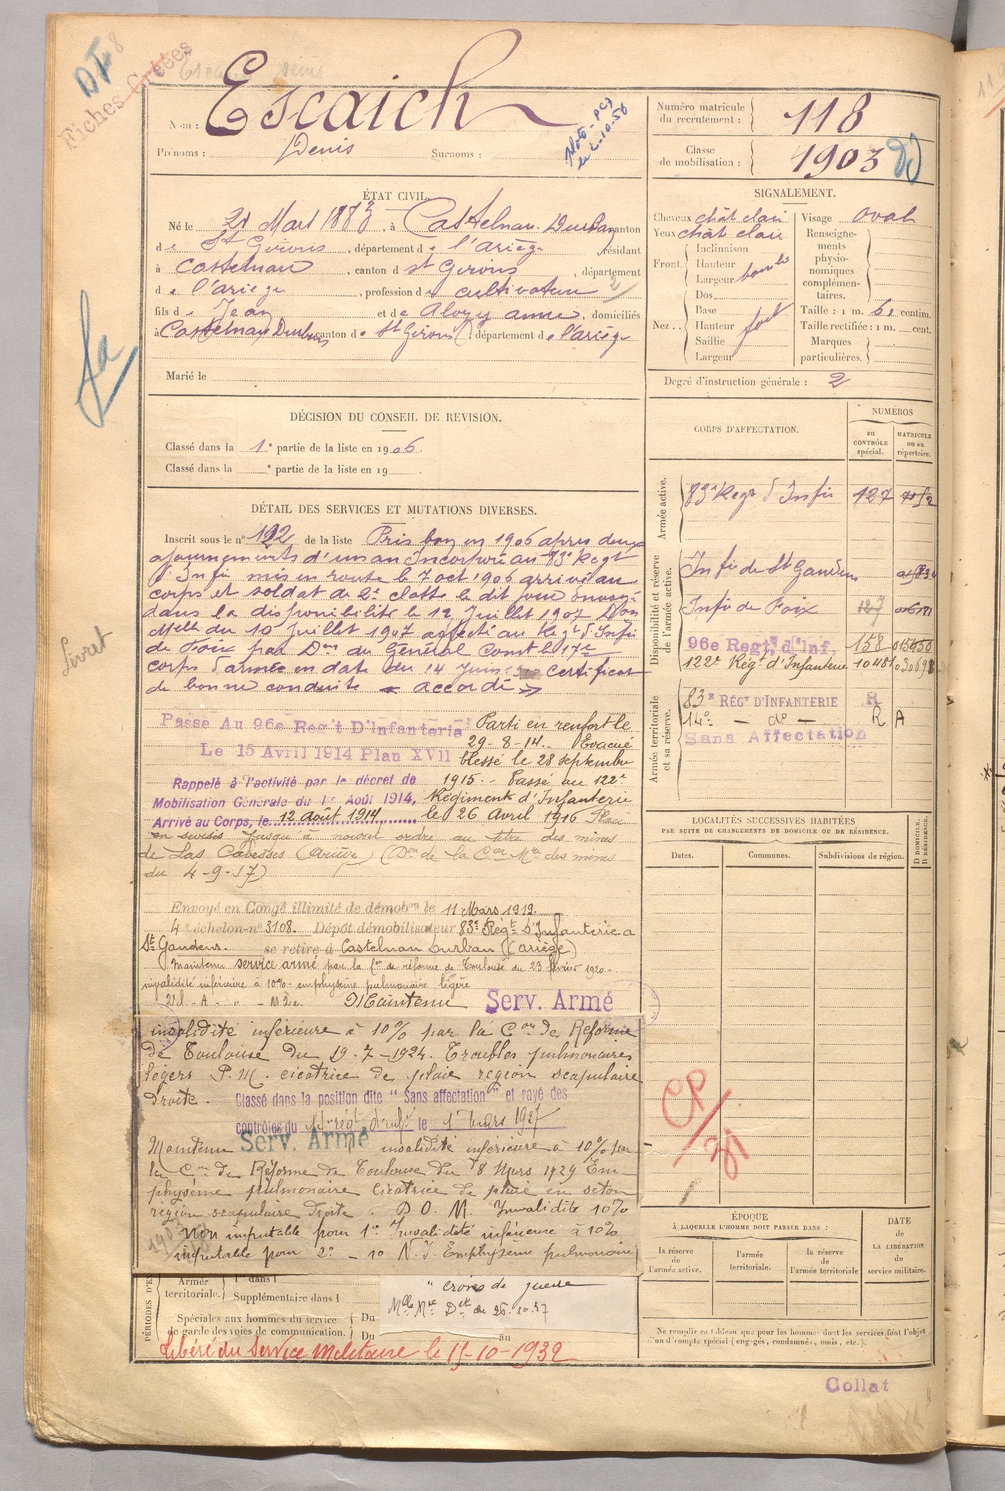 Fiches Créées
Nom : Escaich
Prénoms : Denis Surnoms :
Noté-
le 2.10.56
Numéro matricule du recrutement : 118
Classe de mobilisation : 1903
ÉTAT CIVIL.
Né le 21 Mars 1883, à Castelnau-Durban, canton
de St Girons, département de l'ariège, résidant
à Castelnau, canton de St Girons, département
de l'ariège, profession de cultivateur
fils de Jean et de Alozy anne, domiciliés
à Castelnau Durban, canton de St Girons, département de l'ariège
Marié le
SIGNALEMENT.
Cheveux chât clair
Yeux chât clair
Front. Inclinaison
Hauteur
Largeur bombé
Nez.. Dos
Base
Hauteur fort
Saillie
Largeur
Visage oval
Renseignements physionomiques complémentaires.
Taille : 1 m. 61 centim.
Taille rectifiée : 1 m. cent.
Marques particulières.
Degré d'instruction générale : 2
DÉCISION DU CONSEIL DE REVISION.
Classé dans la 1e partie de la liste en 1906.
Classé dans la e partie de la liste en 19
DÉTAIL DES SERVICES ET MUTATIONS DIVERSES.
Inscrit sous le n° 192 de la liste Pris bon en 1906 apres deux
ajournements d'un an Incorporé au 83e Regt
d'Infie mis en route le 7 oct 1906 arrivé au
corps et soldat de 2e classe le dit jour envoyé
dans la disponibilité le 12 Juillet 1907 Don
Melle du 10 Juillet 1907 affecté au Regt d'Infie
de Foix par Don du Général Comt le 17e
corps d'armée en date du 14 Juin certificat
de bonne conduite « accordé »
Passé Au 96e Reg't D'Infanterie
Le 15 Avril 1914 Plan XVII
Rappelé à l'activité par le décret de
Mobilisation Générale du 1er Août 1914,
Arrivé au Corps, le 12 août 1914
Parti en renfort le
29-8-14. Evacué
blessé le 28 septembre
1915. - Passé au 122e
Régiment d'Infanterie
le 26 avril 1916 Placé
en sursis jusqu'à nouvel ordre au titre des mines
de Las Cabesses (Ariège) (Don de la Con Mre des mines
du 4-9-17)
Envoyé en Congé illimité de démobon le 11 Mars 1919.
4e échelon-n° 3108. Dépôt démobilisateur 83e Régt d'Infanterie à
St Gaudens. se retire à Castelnau Durban (Ariège)
Maintenu service armé par la Con de réforme de Toulouse du 23 février 1920-
invalidité inférieure à 10% emphysème pulmonaire légère
Maintenu Serv. Armé
invalidité inférieure à 10% par la Con de Réforme
de Toulouse du 19-7-1924. Troubles pulmonaires
légers P.M. cicatrice de plaie region scapulaire
droite.
Classé dans la position dite "Sans affectation" et rayé des
contrôles du le 1 mars 1927
Maintenu Serv. Armé invalidité inférieure à 10% par
la Con de Réforme de Toulouse du 8 Mars 1929 Em-
physème pulmonaire cicatrice de plaie en séton
region scapulaire droite. P. O. M. Invalidité 10%
Non imputable pour 1° Invalidité inférieure à 10%
imputable pour 2° - 10 N. I. Emphysème pulmonaire
PÉRIODES D'EX
Armée territoriale.
1er dans l
Supplémentaire dans l
Spéciales aux hommes du service
de garde des voies de communication.
Du
Du au
" croix de guerre
Mlle Mre Det du 26.10.37
Libéré du Service Militaire le 15-10-1932
CORPS D'AFFECTATION.
NUMÉROS
AU CONTRÔLE spécial.
MATRICULE OU AU répertoire.
Armée active.
83e Regt d'Infie 127
Disponibilité et réserve de l'armée active.
Infie de St Gaudens
Infie de Foix
96e Regt d'Inf. 158 015450
122e Régt d'Infanterie
Armée territoriale et sa réserve.
83e RÉGT D'INFANTERIE R
14e — do — R A
Sans Affectation
LOCALITÉS SUCCESSIVES HABITÉES
PAR SUITE DE CHANGEMENTS DE DOMICILE OU DE RÉSIDENCE.
Dates. Communes. Subdivisions de région. D DOMICILE. R RÉSIDENCE.
CP
ÉPOQUE
À LAQUELLE L'HOMME DOIT PASSER DANS :
la réserve de l'armée active.
l'armée territoriale.
la réserve de l'armée territoriale
DATE de LA LIBÉRATION du service militaire.
Ne remplir ce tableau que pour les hommes dont les services font l'objet
d'un compte spécial (engagés, condamnés, omis, etc.).
Collat
Livret